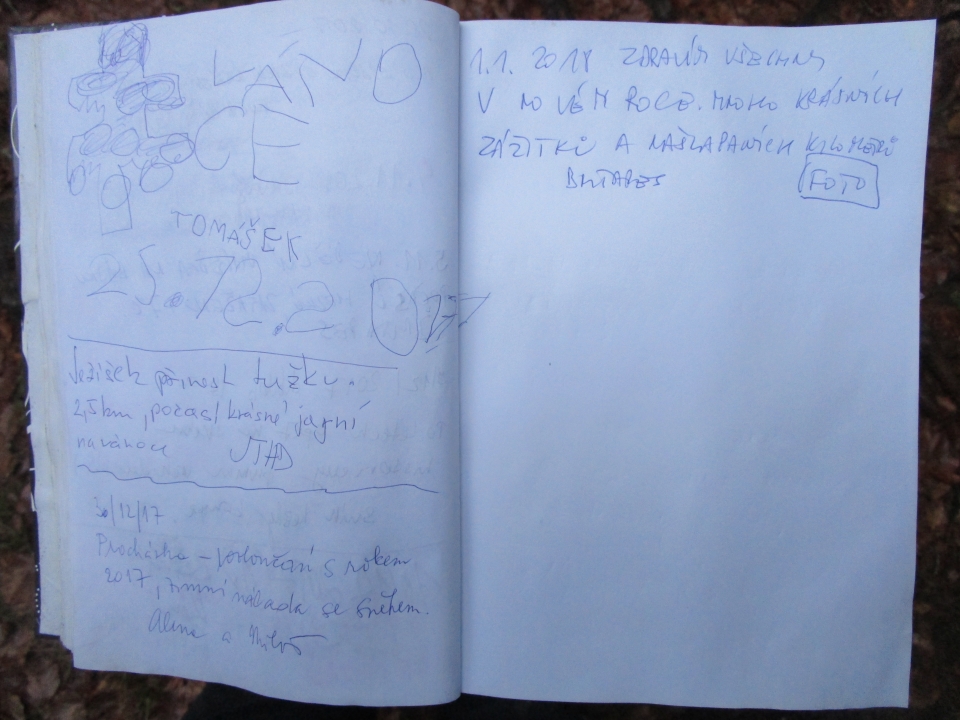 VÁNO
CE
TOMÁŠEK
25.12.2017
Ježíšek přinesl tužku.
2,5km, počasí krásné jarní
na vánoce
30/12/17
Procházka – rozloučení s rokem
2017, zimní nálada se sněhem.
Alena a Miloš
1.1. 2018 ZDRAVÍM VŠECHNY
V NOVÉM ROCE. MNOHO KRÁSNÝCH
ZÁŽITKŮ A NAŠLAPANÝCH KILOMETRŮ
FOTO